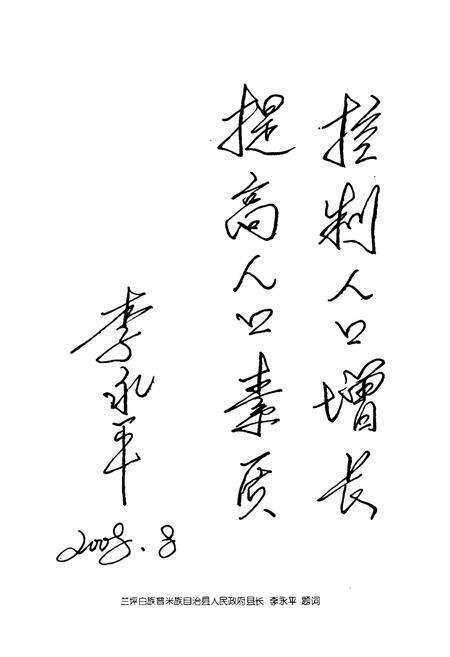 控制人口增长
提高人口素质
李永平
2008.8
兰坪白族普米族自治县人民政府县长 李永平 题词